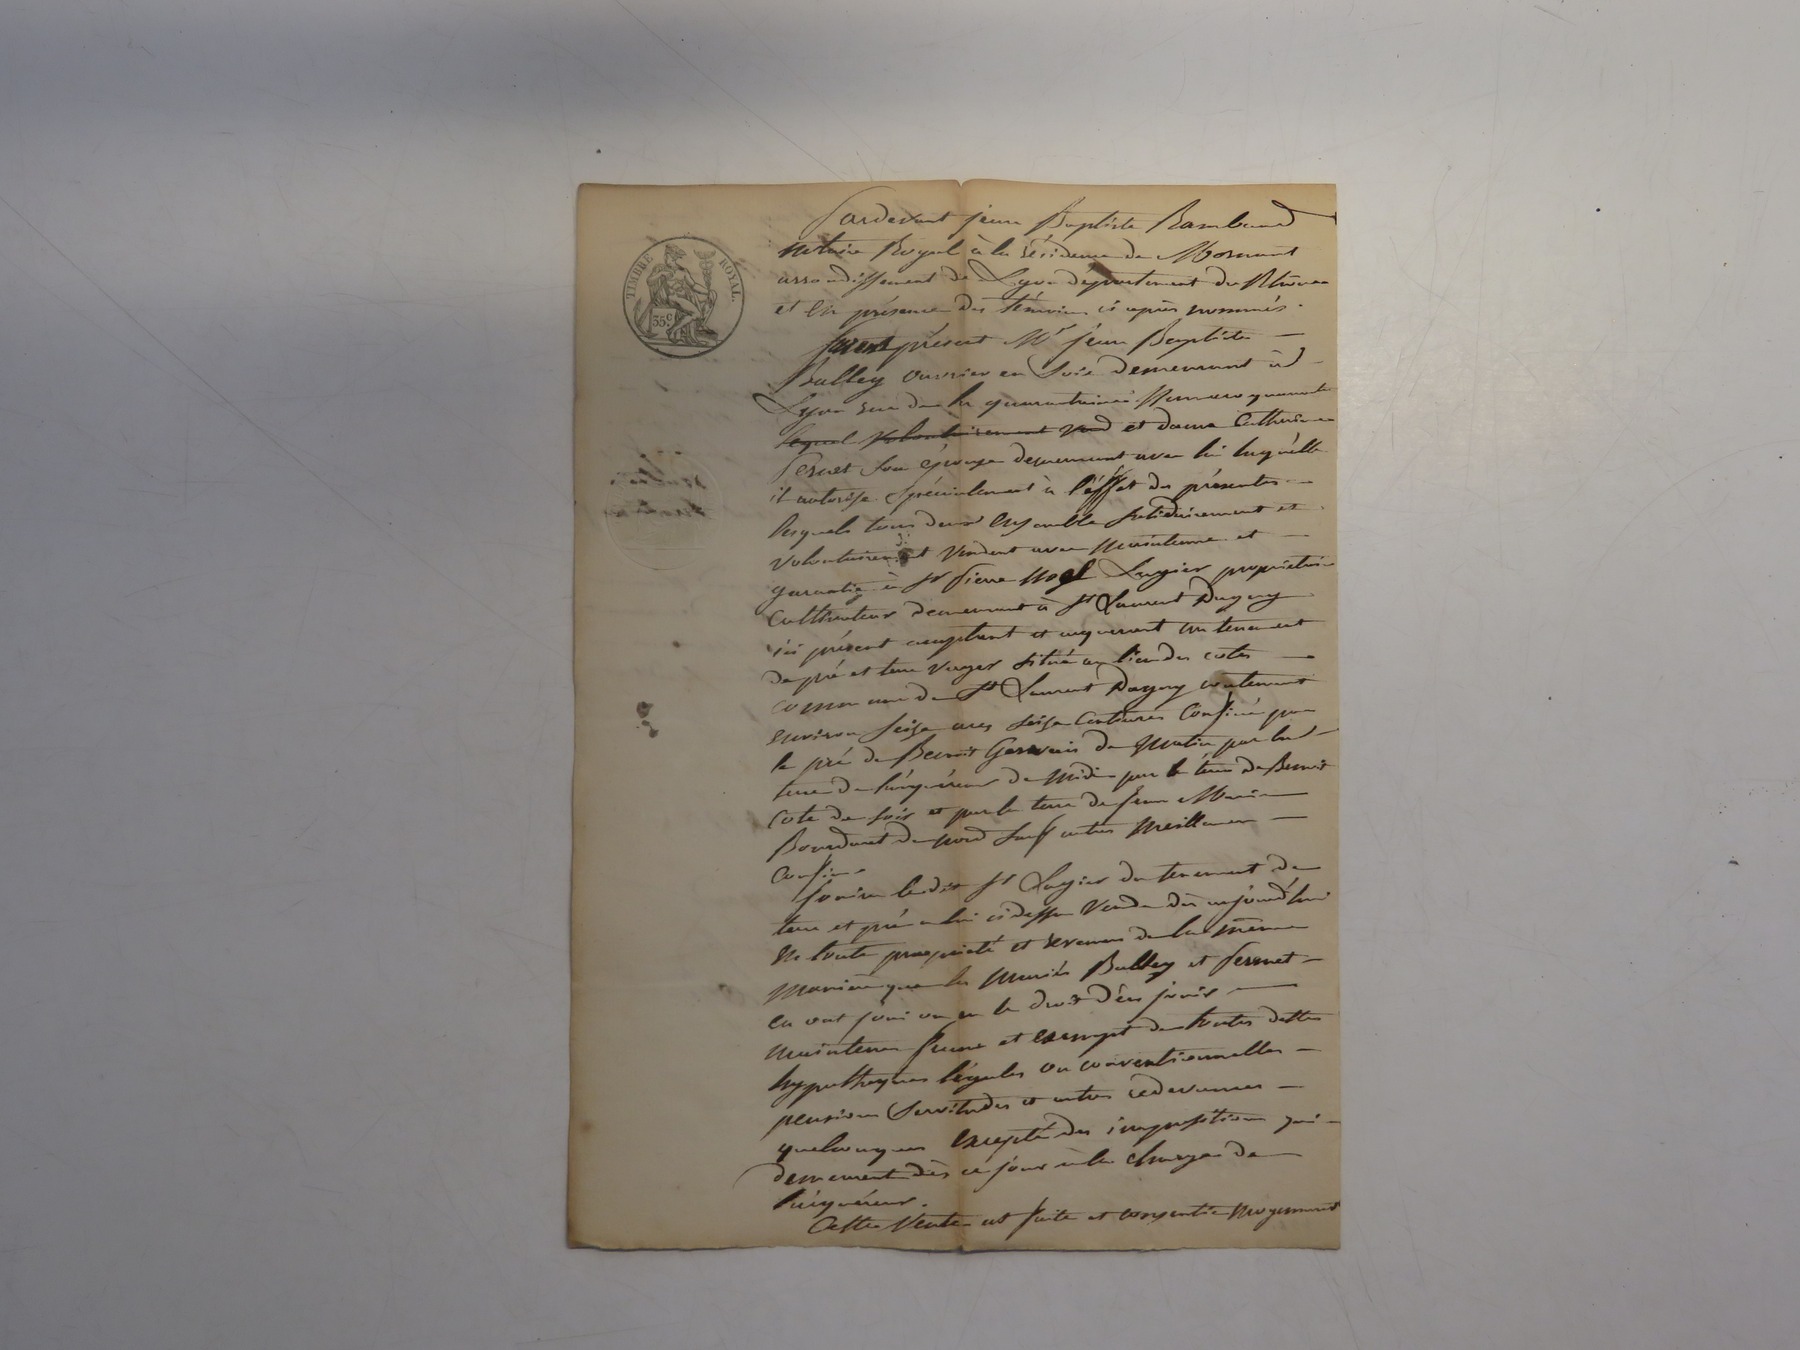 TIMBRE ROYAL.
35 c.
Pardevant jean Baptiste Rambaud
notaire Royal à la résidence de Mornant
arrondissement de Lyon département du Rhône
et en présence des témoins ci après nommés.
furent présent Mr jean Baptiste
Balley ouvrier en soie demeurant à
Lyon rue de la quarantaine numero quarante
lequel volontairement vend et dame Catherine
Fernet son épouse demeurant avec lui laquelle
il autorise spécialement à l'éffet des présentes
lesquels tous deux ensemble solidairement et
volontairement vendent avec maintenue et
garantie à sr Pierre Noel Lagier propriétaire
cultivateur demeurant à St Laurent Dagny
ici présent acceptant et acquerant un tenement
de pré et terre verger situé au lieu des cotes
commune de St Laurent Dagny contenant
environ seize ares seize centiares confiné par
le pré de Benoit Gervais de matin, par la
terre de l'acquéreur de midi par la terre de Benoit
Cote de soir et par la terre de Jean Marie
Bourdaret de nord sauf autres meilleurs
confins.
Jouira ledit sr Lagier du tenement de
terre et pré a lui ci dessus vendu dès aujourd'hui
en toute propriété et revenus de la même
manière que les mariés Balley et Fernet
en ont joui ou eu le droit d'en jouir
maintenu franc et exempt de toutes dettes
hypothèques légales ou conventionnelles
pensions servitudes et autres redevances
quelconques excepté des impositions qui
demeurent dès ce jour à la charge de
l'acquéreur.
Cette vente est faite et consentie moyennant